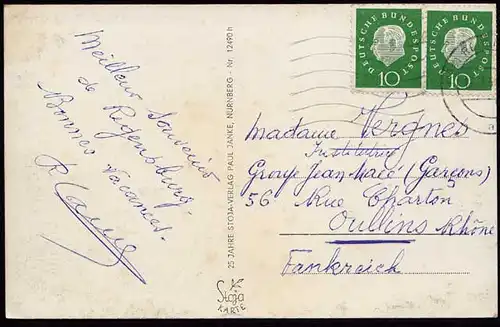 Meilleur Souvenir
de Regensburg.
Bonnes vacances.
25 JAHRE STOJA-VERLAG PAUL JANKE, NÜRNBERG - Nr. 12490 h
Stoja
KARTE
DEUTSCHE BUNDESPOST
10
DEUTSCHE BUNDESPOST
10
Madame Vergnes
Institutrice
George Jean Macé (Garçons)
56 Rue Charton
Oullins Rhône
Frankreich